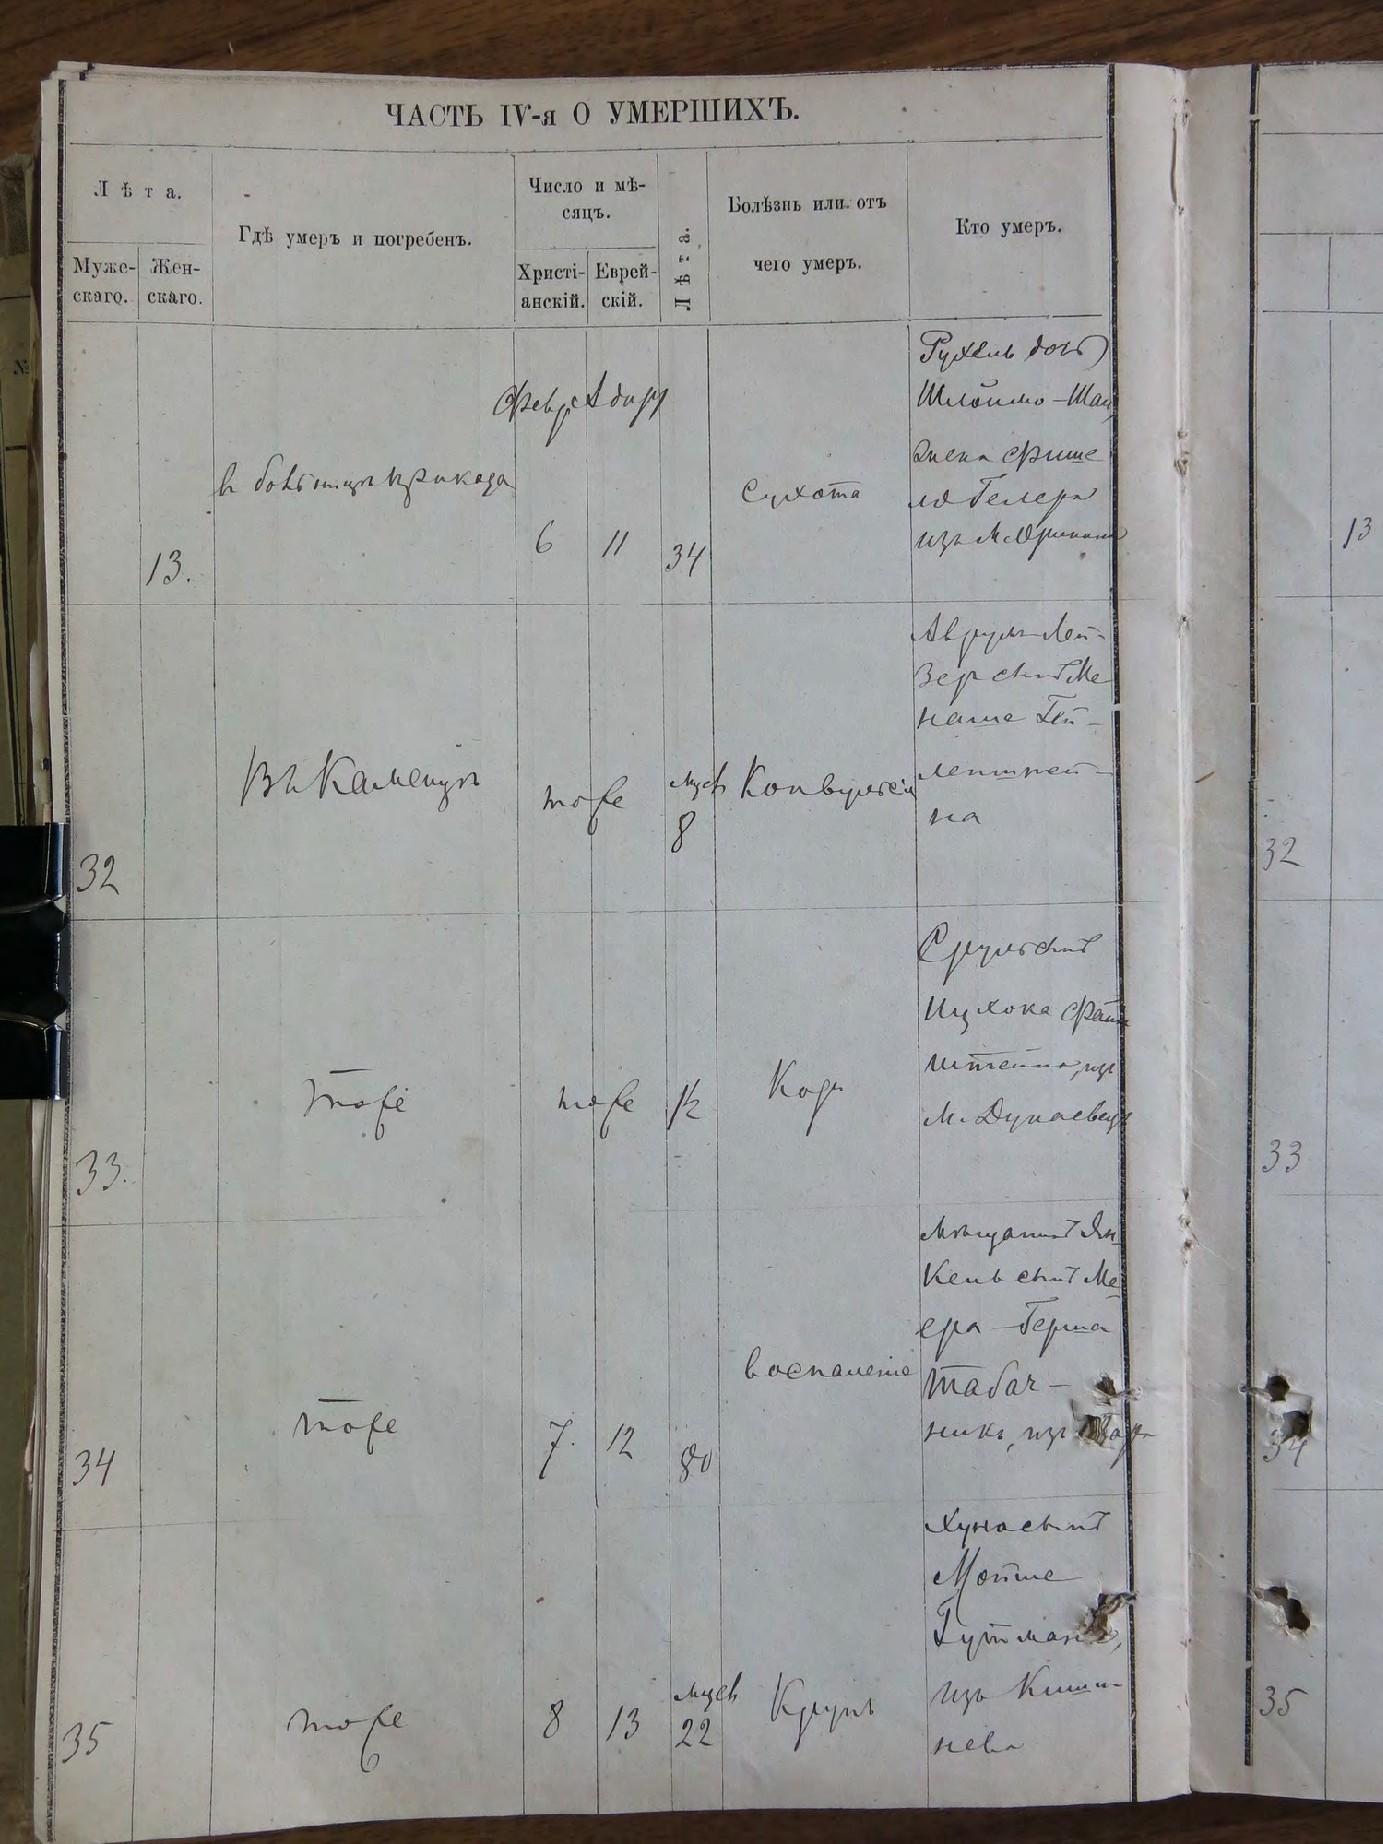 ЧАСТЬ IV-я О УМЕРШИХЪ.
Лѣта.
Муже-
скаго.
Жен-
скаго.
Гдѣ умеръ и погребенъ.
Число и мѣ-
сяцъ.
Христі-
анскій.
Еврей-
скій.
Лѣта.
Болѣзнь или отъ
чего умеръ.
Кто умеръ.
13.
в больницѣ приказа
Февр Адару
6 11
34
Сухота
Рухель дочь
Шлоимо-Шаи
жена Фише
ля Гелера
изъ м.
13
32
Въ Каменцѣ
тоже
мцев
8
Конвульсіи
Аврумъ-Лей-
зеръ сынъ Ме
наше
на
32
33.
тоже
тоже
1/2
Корь
Сруль сынъ
Ицхока Фаин
штейна, изъ
м. Дунаевецъ
33
34
тоже
7. 12
80
воспаление
мѣщанинъ Ян-
кель сынъ Ме
ера-Герша
Табач-
никъ, изъ
34
35
тоже
8 13
мцев
22
Крупъ
Хуна сынъ
Мотте
Гутмана,
изъ Киши-
нева
35